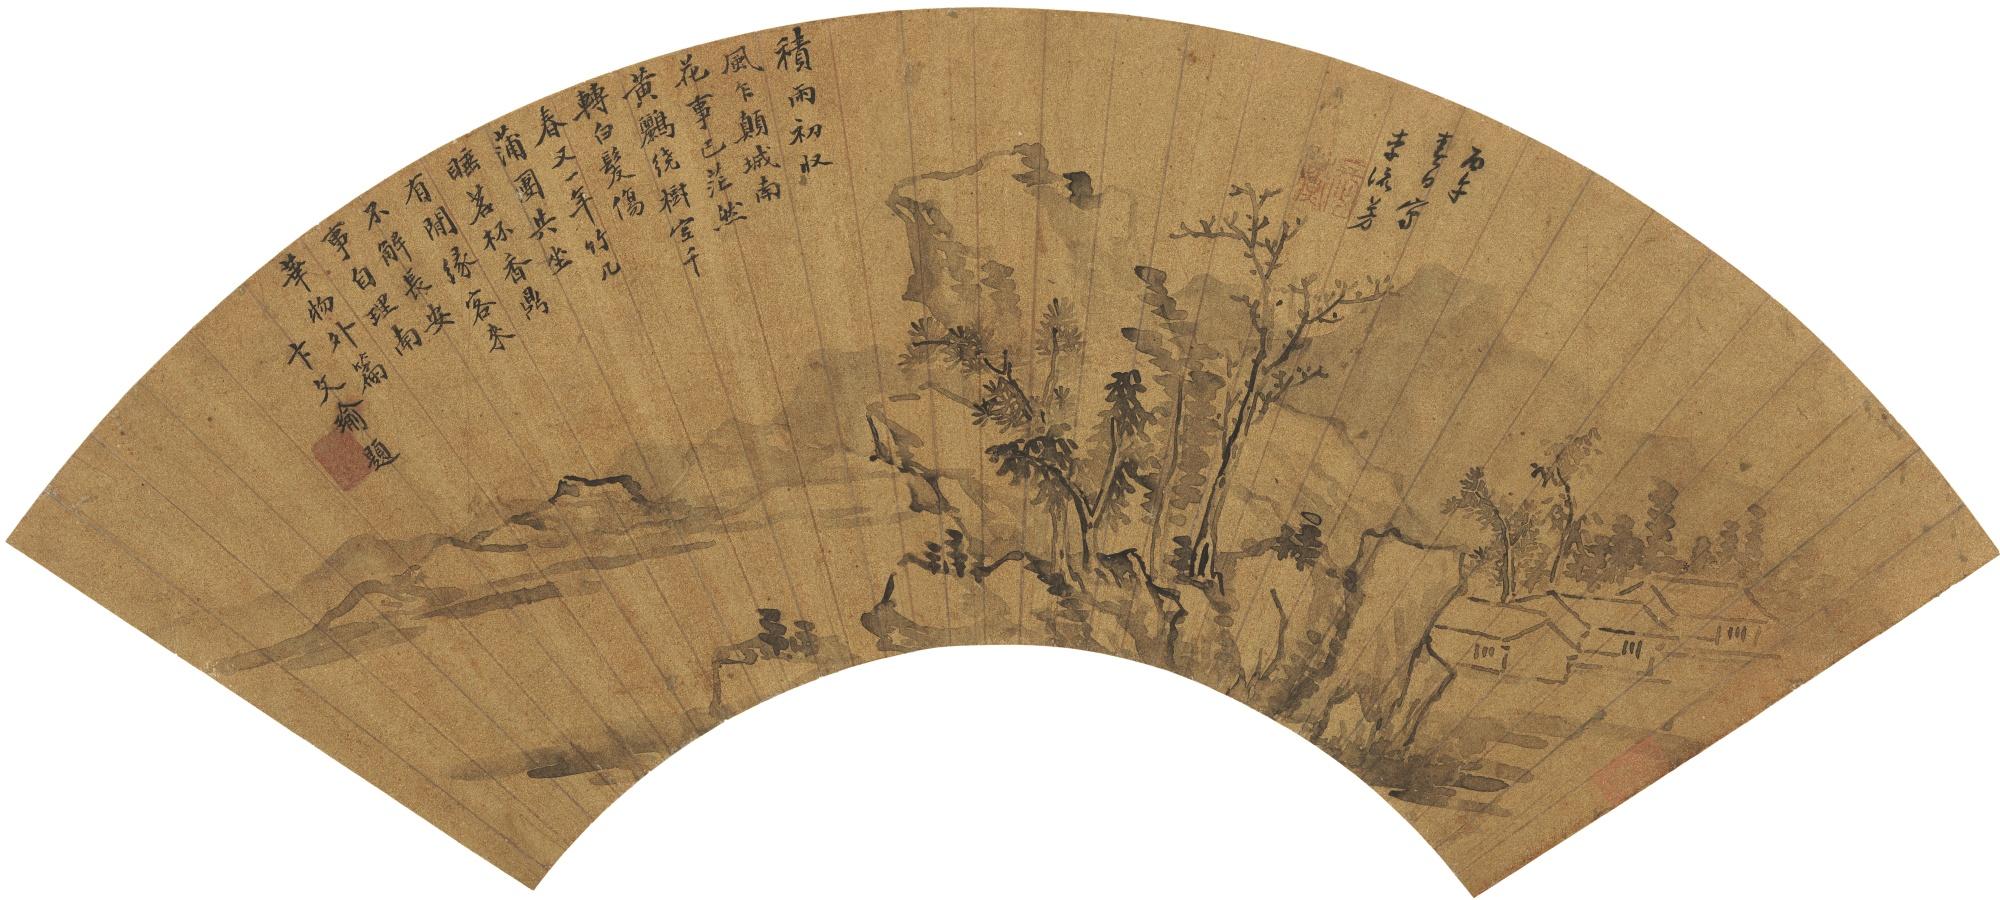 丙午
春日寫
李流芳
積雨初收
風乍顛城南
花事已茫然
黃鸝繞樹空千
轉白髮傷
春又一年竹几
蒲團共坐
睡茗杯香鼎
有閒緣客來
不解長安
事自理南
華物外篇
卞文瑜題